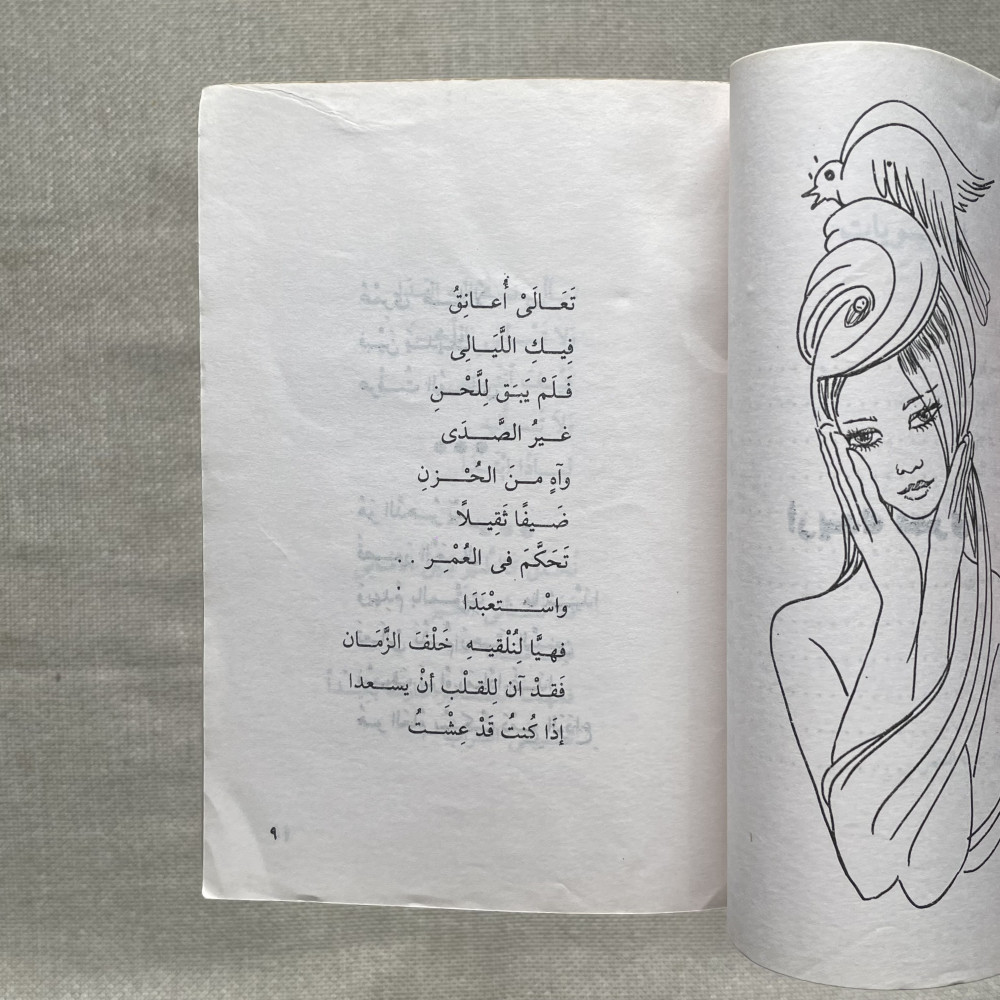 تَعَـالَىْ أُعـانِقُ
فِيـكِ اللَّيَـالِى
فَـلَمْ يَبَق لِلَّحْـنِ
غـيرُ الصَّـدَى
وآهٍ مـنَ الحُـزنِ
ضَـيفًا ثَقِيـلًا
تَحَكَّمَ فى العُمْـرِ . .
واسْـتعْبَدَا
فهيَّا لِنُلْقيـهِ خَلْفَ الزَّمَـان
فَقدْ آن لِلقلْبِ أنْ يسـعدا
إذَا كُنتُ قَدْ عِشْـتُ
٩